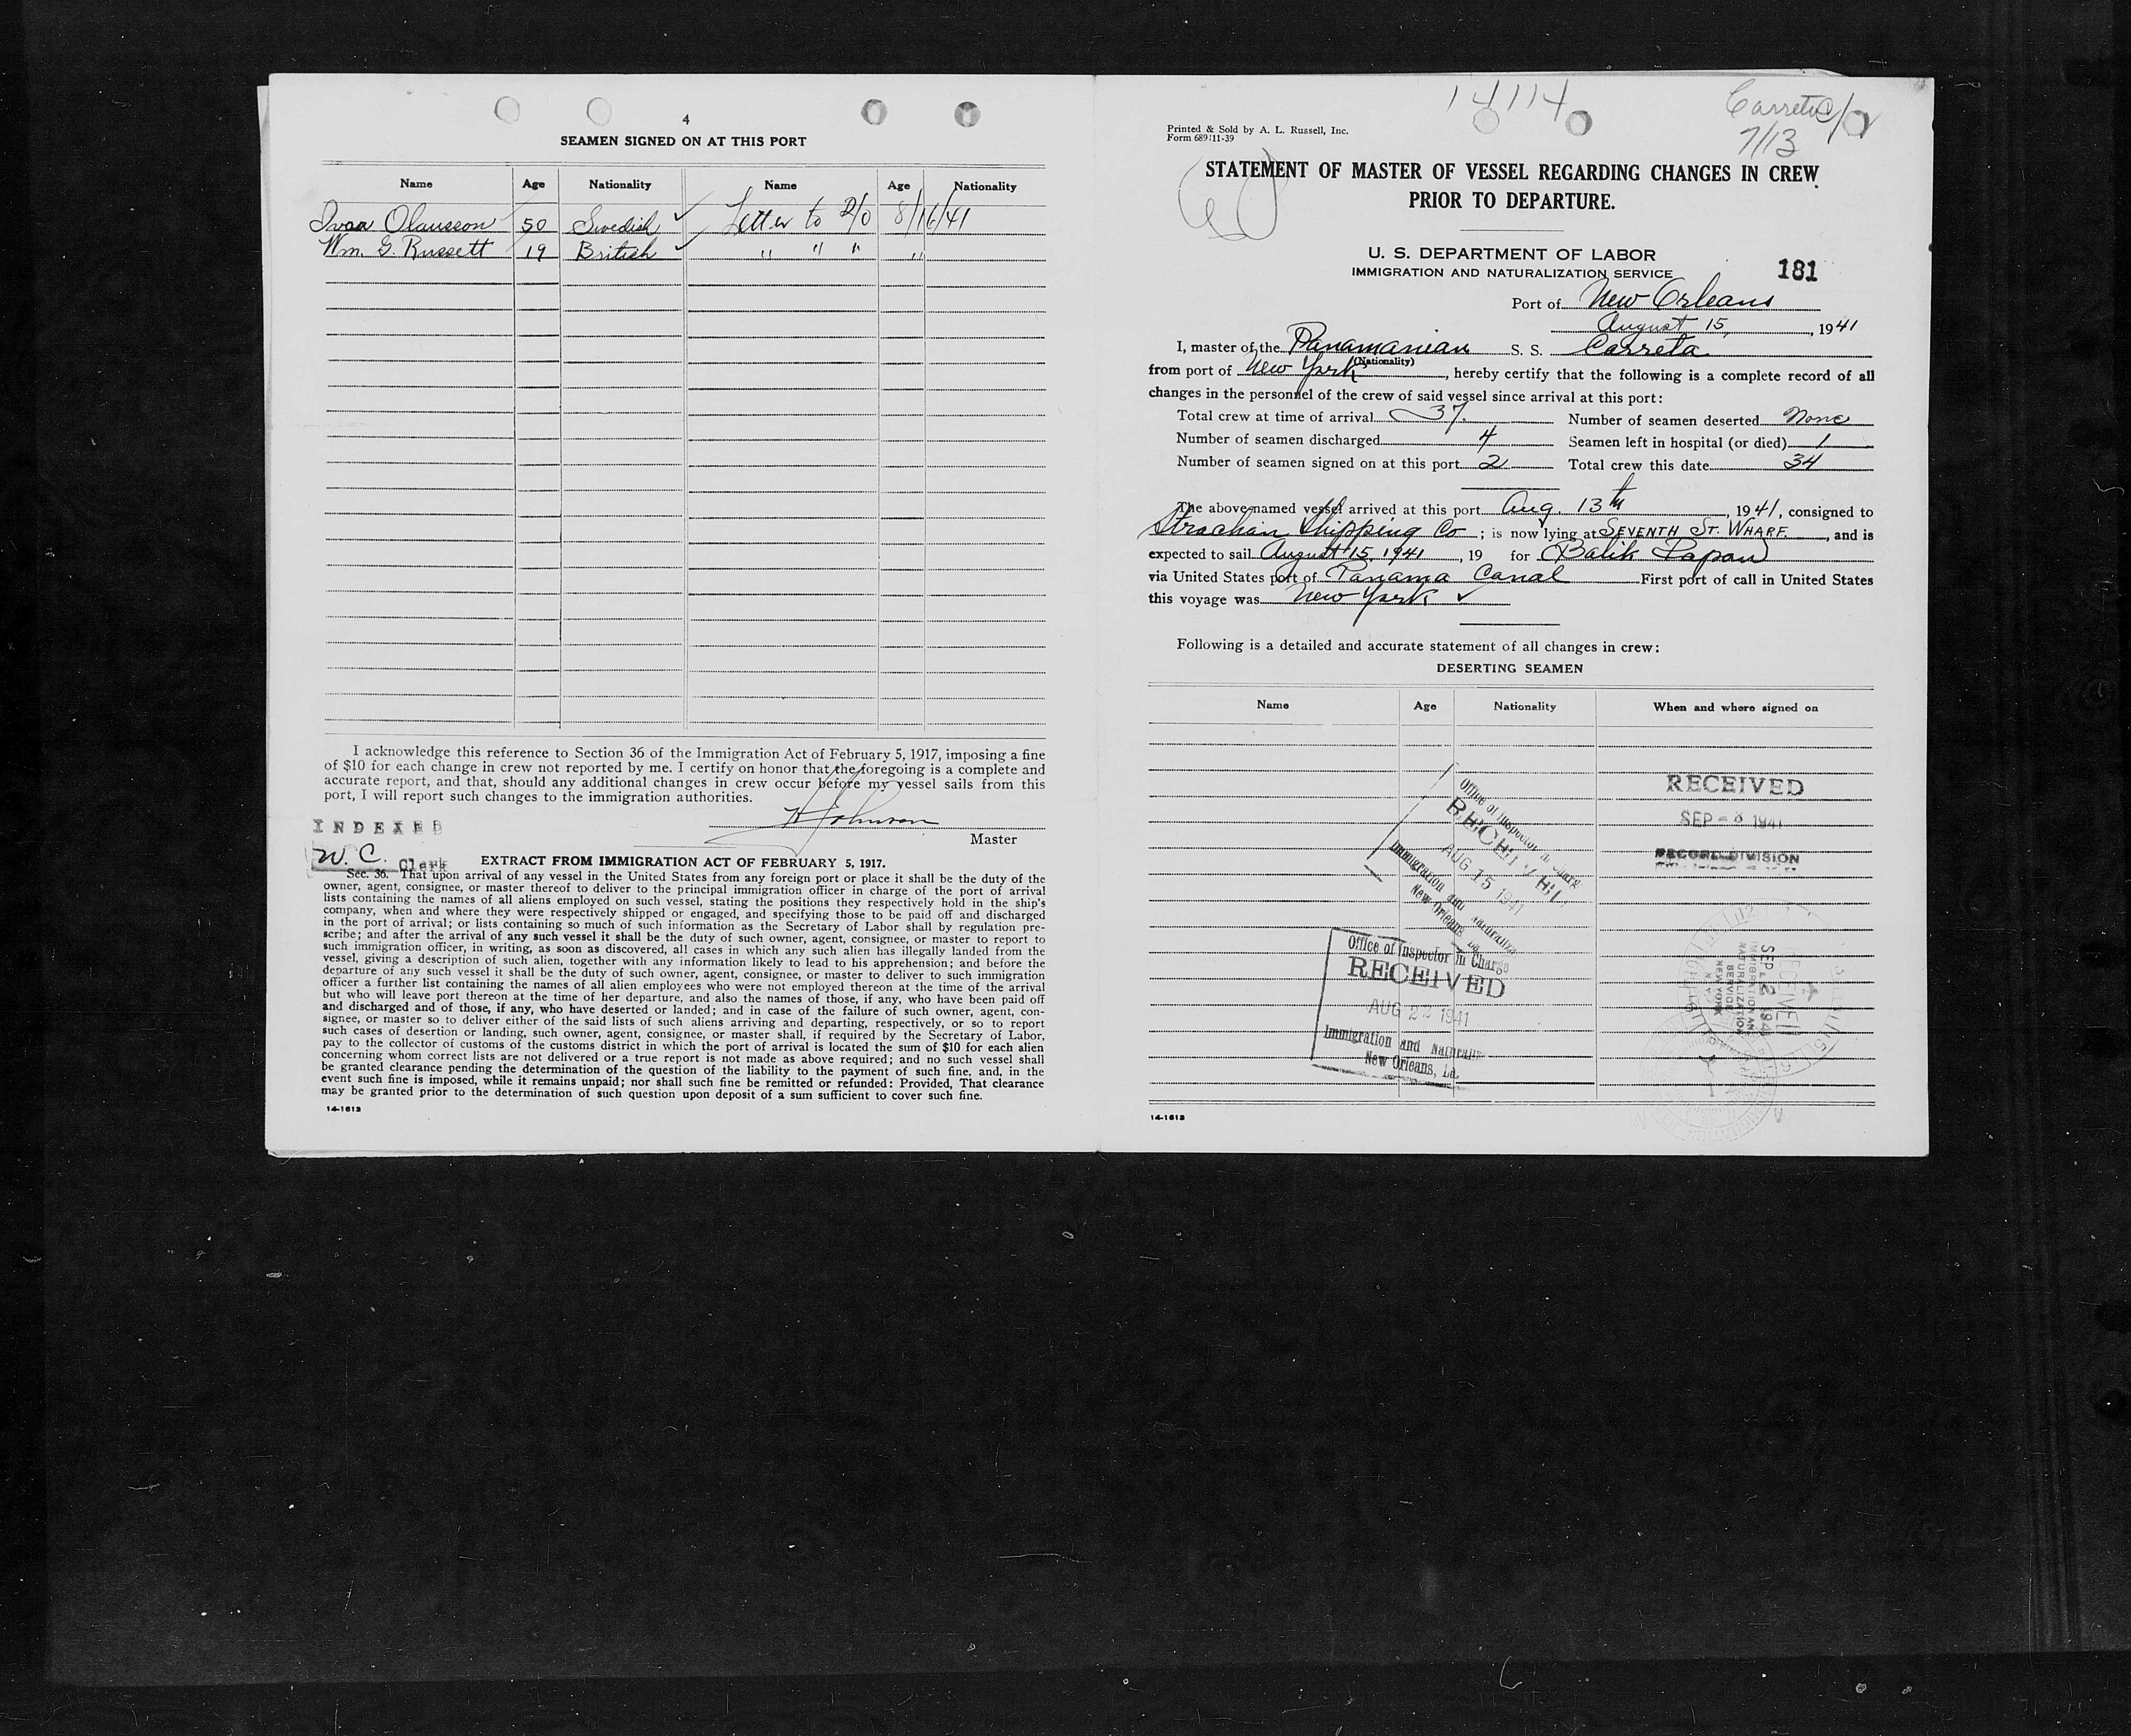 4
SEAMEN SIGNED ON AT THIS PORT
Name Age Nationality Name Age Nationality
Ivan Olausson 50 Swedish ✓ Letter to D/O 8/16/41
Wm. G. Russett 19 British ✓ " " " "
I acknowledge this reference to Section 36 of the Immigration Act of February 5, 1917, imposing a fine
of $10 for each change in crew not reported by me. I certify on honor that the foregoing is a complete and
accurate report, and that, should any additional changes in crew occur before my vessel sails from this
port, I will report such changes to the immigration authorities.
H Johnson
Master
INDEXED
W. C. Clerk
EXTRACT FROM IMMIGRATION ACT OF FEBRUARY 5, 1917.
Sec. 36. That upon arrival of any vessel in the United States from any foreign port or place it shall be the duty of the
owner, agent, consignee, or master thereof to deliver to the principal immigration officer in charge of the port of arrival
lists containing the names of all aliens employed on such vessel, stating the positions they respectively hold in the ship's
company, when and where they were respectively shipped or engaged, and specifying those to be paid off and discharged
in the port of arrival; or lists containing so much of such information as the Secretary of Labor shall by regulation pre-
scribe; and after the arrival of any such vessel it shall be the duty of such owner, agent, consignee, or master to report to
such immigration officer, in writing, as soon as discovered, all cases in which any such alien has illegally landed from the
vessel, giving a description of such alien, together with any information likely to lead to his apprehension; and before the
departure of any such vessel it shall be the duty of such owner, agent, consignee, or master to deliver to such immigration
officer a further list containing the names of all alien employees who were not employed thereon at the time of the arrival
but who will leave port thereon at the time of her departure, and also the names of those, if any, who have been paid off
and discharged and of those, if any, who have deserted or landed; and in case of the failure of such owner, agent, con-
signee, or master so to deliver either of the said lists of such aliens arriving and departing, respectively, or so to report
such cases of desertion or landing, such owner, agent, consignee, or master shall, if required by the Secretary of Labor,
pay to the collector of customs of the customs district in which the port of arrival is located the sum of $10 for each alien
concerning whom correct lists are not delivered or a true report is not made as above required; and no such vessel shall
be granted clearance pending the determination of the question of the liability to the payment of such fine, and, in the
event such fine is imposed, while it remains unpaid; nor shall such fine be remitted or refunded: Provided, That clearance
may be granted prior to the determination of such question upon deposit of a sum sufficient to cover such fine.
14-1613
14114
Carreta
7/13
Printed & Sold by A. L. Russell, Inc.
Form 689:11-39
STATEMENT OF MASTER OF VESSEL REGARDING CHANGES IN CREW
PRIOR TO DEPARTURE.
U. S. DEPARTMENT OF LABOR
IMMIGRATION AND NATURALIZATION SERVICE
181
Port of New Orleans
August 15, 1941
I, master of the Panamanian S. S. Carreta
(Nationality)
from port of New York, hereby certify that the following is a complete record of all
changes in the personnel of the crew of said vessel since arrival at this port:
Total crew at time of arrival 37. Number of seamen deserted None
Number of seamen discharged 4 Seamen left in hospital (or died) 1
Number of seamen signed on at this port 2 Total crew this date 34
The above-named vessel arrived at this port Aug. 13th, 1941, consigned to
Strachan Shipping Co; is now lying at SEVENTH ST. WHARF, and is
expected to sail August 15, 1941, 19 for Balik Papan
via United States port of Panama Canal First port of call in United States
this voyage was New York ✓
Following is a detailed and accurate statement of all changes in crew:
DESERTING SEAMEN
Name Age Nationality When and where signed on
RECEIVED
SEP - 8 1941
RECORD DIVISION
Office of Inspector in Charge
RECEIVED
AUG 15 1941
Immigration and Naturaliza
New Orleans, La.
Office of Inspector in Charge
RECEIVED
AUG 22 1941
Immigration and Naturaliz
New Orleans, La.
RECEIVED
IMMIGRATION AND
NATURALIZATION
SERVICE
NEW YORK
N. Y.
14-1613